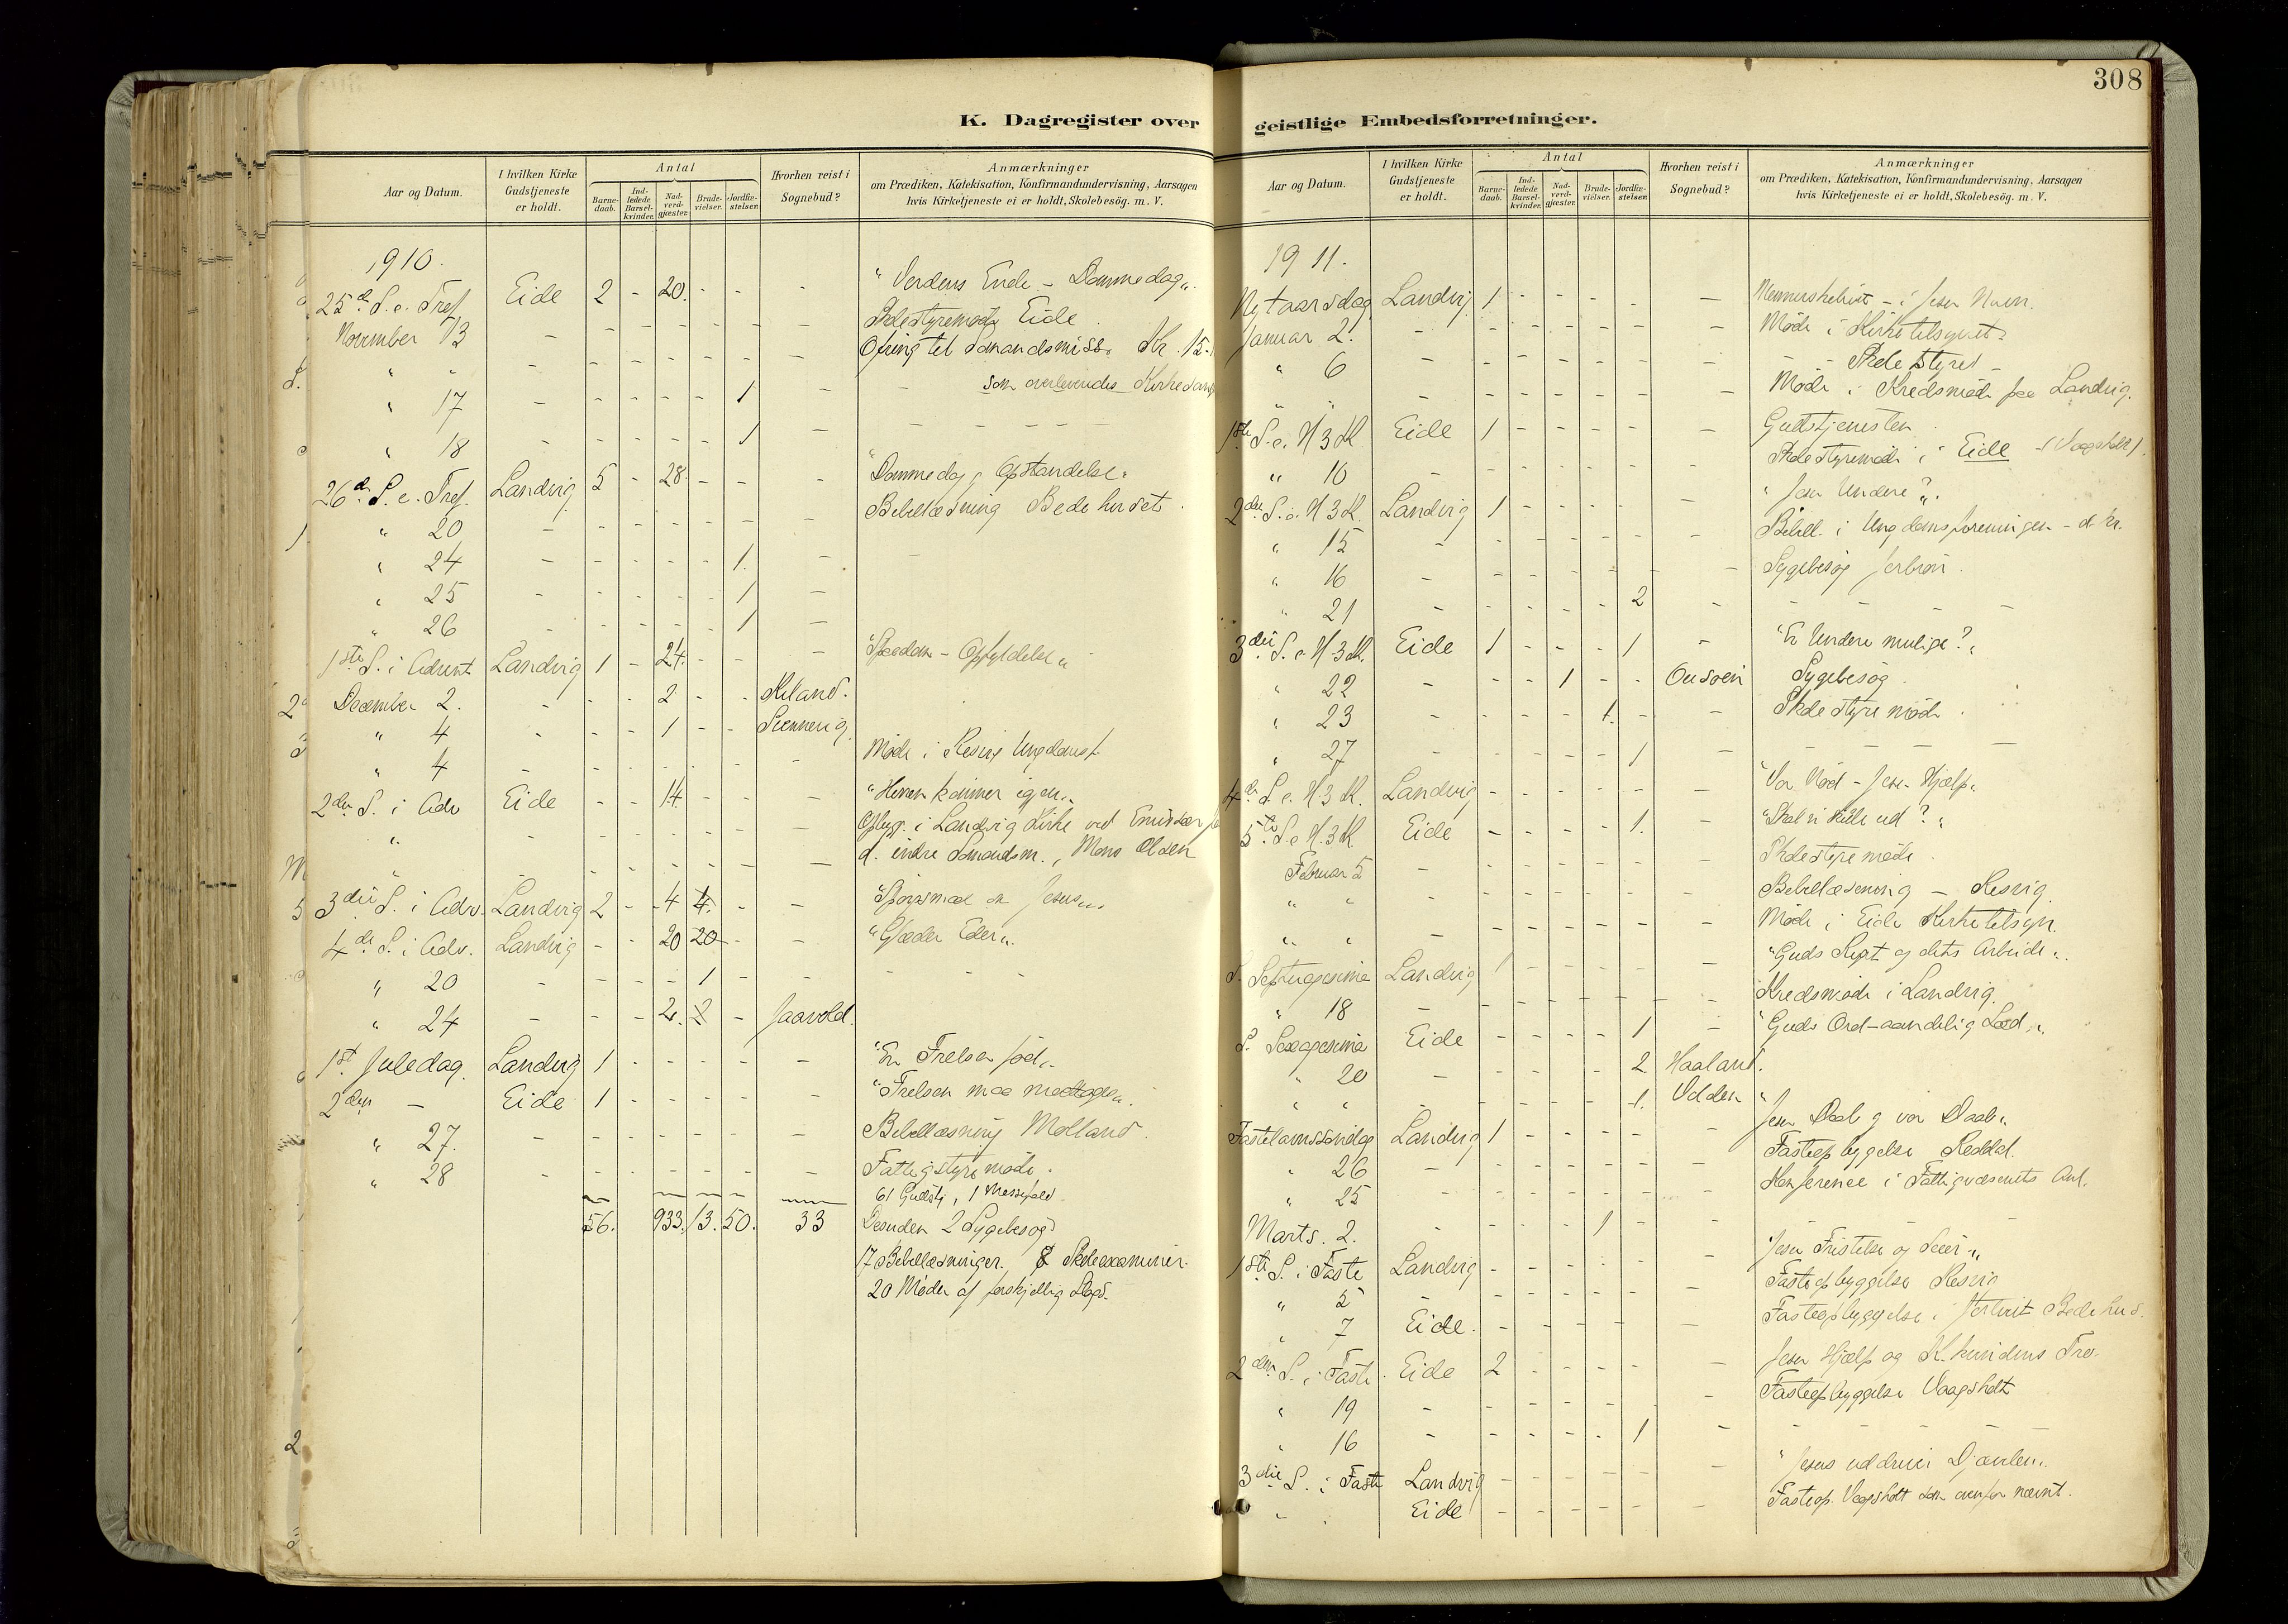 K. Dagregister over
Aar og Datum. I hvilken Kirke Gudstjeneste er holdt. Antal Barnedaab. Indledede Barselkvinder. Nadverdgjæster. Brudevielser. Jordfæstelser. Hvorhen reist i Sognebud? Anmærkninger om Prædiken, Katekisation, Konfirmandundervisning, Aarsagen hvis Kirketjeneste ei er holdt, Skolebesög. m. V.
1910.
25de S. e. Tref. Eide 2 - 20. - - - "Verdens Ende - Dommedag".
November 13 - - - - - - - Skolestyremøde Eide
" " - - - - - - - Ofring til Sømandsmiss. Kr. 15.
" 17 - - - - - - 1 - - som overlevendes
" 18 - - - - - - 1 - - - - -
26de S. e. Tref. Landvig 5 - 28. - - - "Dommedag, Opstandelse"
" 20 - - - - - - - Bibellæsning Bedehuset
" 24 - - - - - - 1. - -
" 25 - - - - - - 1 -
" 26 - - - - - - 1 -
1ste S. i Advent Landvig 1 - 24. - - - "Spaadom - Opfyldelse"
December 2. - - - 2 - - Kiland.
" 4 - - - 1 - -
" 4 - - - - - - - Møde i Resvig
2den S. i Adv Eide - - 14 - - - "Herren kommer igjen".
" - - - - - - - Opbygg. i Landvig Kirke ved Emissær
" - - - - - - - d. indre Sømandsm., Mons Olsen
3die S. i Adv. Landvig 2 - 4 4. - - "Spørsmaal om Jesus"
4de S. i Adv. Landvig - - 20 20 - - "Glæder Eder".
" 20 - - - - 1 - - - - -
" 24 - - - 2. 2 - Jaavold.
1st. Juledag. Landvig 1 - - - - - "En Frelser fød".
2den - Eide 1 - - - - - "Frelsen maa modtages".
" 27. - - - - - - - Bibellæsning Molland.
" 28 - - - - - - - Fattigstyremøde.
61 Gudstj, 1 Messefald
56. 933. 13. 50. 33 Desuden 2 Sygebesøg
17 Bibellæsninger. 8 Skoleexaminer.
20 Møder af forskjellig Slags.
308
geistlige Embedsforretninger.
Aar og Datum. I hvilken Kirke Gudstjeneste er holdt. Antal Barnedaab. Indledede Barselkvinder. Nadverdgjæster. Brudevielser. Jordfæstelser. Hvorhen reist i Sognebud? Anmærkninger om Prædiken, Katekisation, Konfirmandundervisning, Aarsagen hvis Kirketjeneste ei er holdt, Skolebesög. m. V.
1911.
Nytaarsdag Landvig 1 - - - - - i Jesu Navn.
Januar 2. - - - - - - - Møde i Kirketilsynet
" 6 - - - - - - - - - Skolestyret -
" " - - - - - - - Møde i Kredsmøde paa Landvig.
1ste S. e. H 3 K Eide 1 - - - - Gudstjenesten
" 10 - - - - - - Skolestyremøde i Eide (Vaagsholt).
2den S. e. H 3 K. Landvig 1 - - - - - "Jesu Undere".
" 15 - - - - - - - Bibell. i Ungdomsforeningen
" 16 - - - - - - - Sygebesøg
" 21 - - - - - 2 - - - - -
3die S. e. H. 3 K. Eide 1 - - - 1 - "Er Undere mulige?"
" 22 - - - 1 - - Sygebesøg
" 23 - - - - - 1. - - Skolestyremøde.
" 27 - - - - - 1 - - - - -
4de S. e. H 3 K. Landvig - - - - - - "Vor Nød - Jesu Hjælp"
5te S. e. H. 3 K Eide - - - - 1. - "Skal vi skille ud?"
Februar 5 - - - - - - - Skolestyremøde.
" " - - - - - - Bibellæsning - Resvig
" " - - - - - - - Møde i Eide Kirketilsyn.
S. Septuagesima Landvig 1 - - - - - "Guds Rige og dets Arbeide".
" 18 - - - - - - - Kredsmøde i Landvig.
S. Sexagesima Eide - - - - 1 - "Guds Ord - aandelig Sæd".
" 20 - - - - - 2 Haaland.
" " - - - - - 1. Udden "
Fastelavnssøndag Landvig 1 - - - - - Jesu Daab og vor Daab"
" 26 - - - - - - - Fasteopbyggelse Reddal.
" 25 - - - - - - - Konference i Fattigvæsenets Anl.
Marts. 2. - - - - 1 - -
1ste S. i Faste Landvig - - - - - - "Jesu Fristelse og Seier".
" 5 - - - - - - - Fasteopbyggelse Resvig
" 7 Eide. - - - - - - Fasteopbyggelse i Bedehus.
2den S. i Faste. Eide 2 - - - - - Jesu Hjælp og K. kvindens Tro.
" 19 - - Fasteopbyggelse Vaagsholt
" 16 - - - - - 1 - - - - -
3die S. i Faste Landvig - - - - - "Jesus uddriver Djævlen".
" . Eide - - - - - - Fasteop. Vaagsholt som ovenfor nævnt.